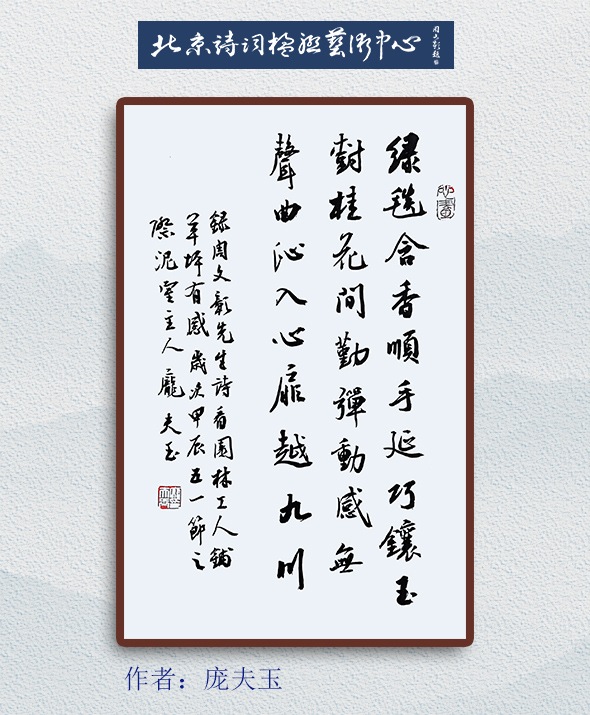 北京詩詞楹聯藝術中心
周文彰題
綠毯含香順手延巧鑲玉
對桂花間勤彈動感無
聲曲沁入心扉越九川
錄周文彰先生詩看園林工人鋪
草坪有感歲次甲辰五一節之
際泥室主人龐夫玉
作者：庞夫玉